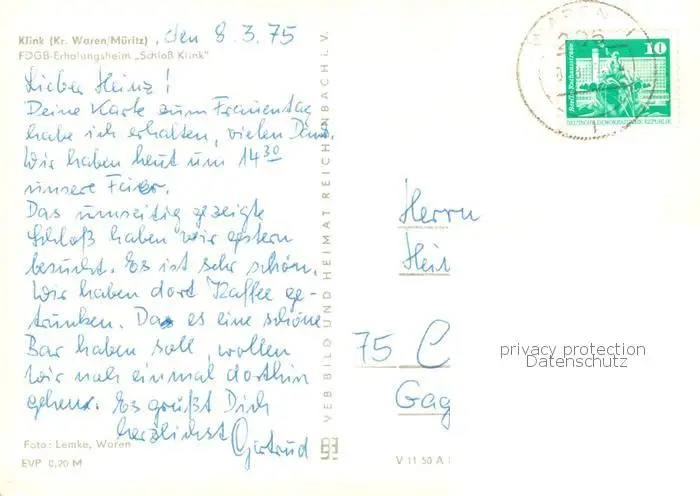 Klink (Kr. Waren/Müritz) , den 8.3.75
FDGB-Erholungsheim „Schloß Klink"
Lieber Heinz!
Deine Karte zum Frauentag
habe ich erhalten, vielen Dank.
Wir haben heut um 14³⁰
unsere Feier.
Das umseitig gezeigte
Schloß haben wir gestern
besucht. Es ist sehr schön.
Wir haben dort Kaffee ge-
trunken. Da es eine schöne
Bar haben soll, wollen
wir noch einmal dorthin
gehen. Es grüßt Dich
herzlichst Gertrud
Foto: Lemke, Waren
EVP 0,20 M
VEB BILD UND HEIMAT REICHENBACH i. V.
V 11 50 A 1
WAREN 1
10
Berlin-Rathausstrasse
DEUTSCHE DEMOKRATISCHE REPUBLIK
Herrn
Hei
75 C
Gag
privacy protection
Datenschutz